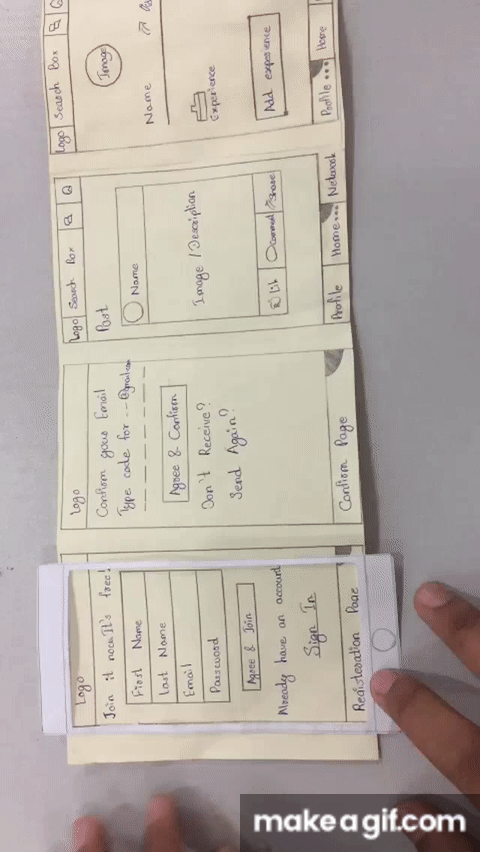 Logo
Join it now It's free!
First Name
Last Name
Email
Password
Agree & Join
Already have an account
Sign In
Registeration Page
Logo
Confirm your Email
Type code for -- @gmail.com
Agree & Confirm
Don't Receive?
Send Again?
Confirm Page
Logo Search Box
Post
Name
Image / Description
Comment Share
Profile Home... Network
Logo Search Box
Image
Name
Experience
Add experience
Profile... Home
makeagif.com